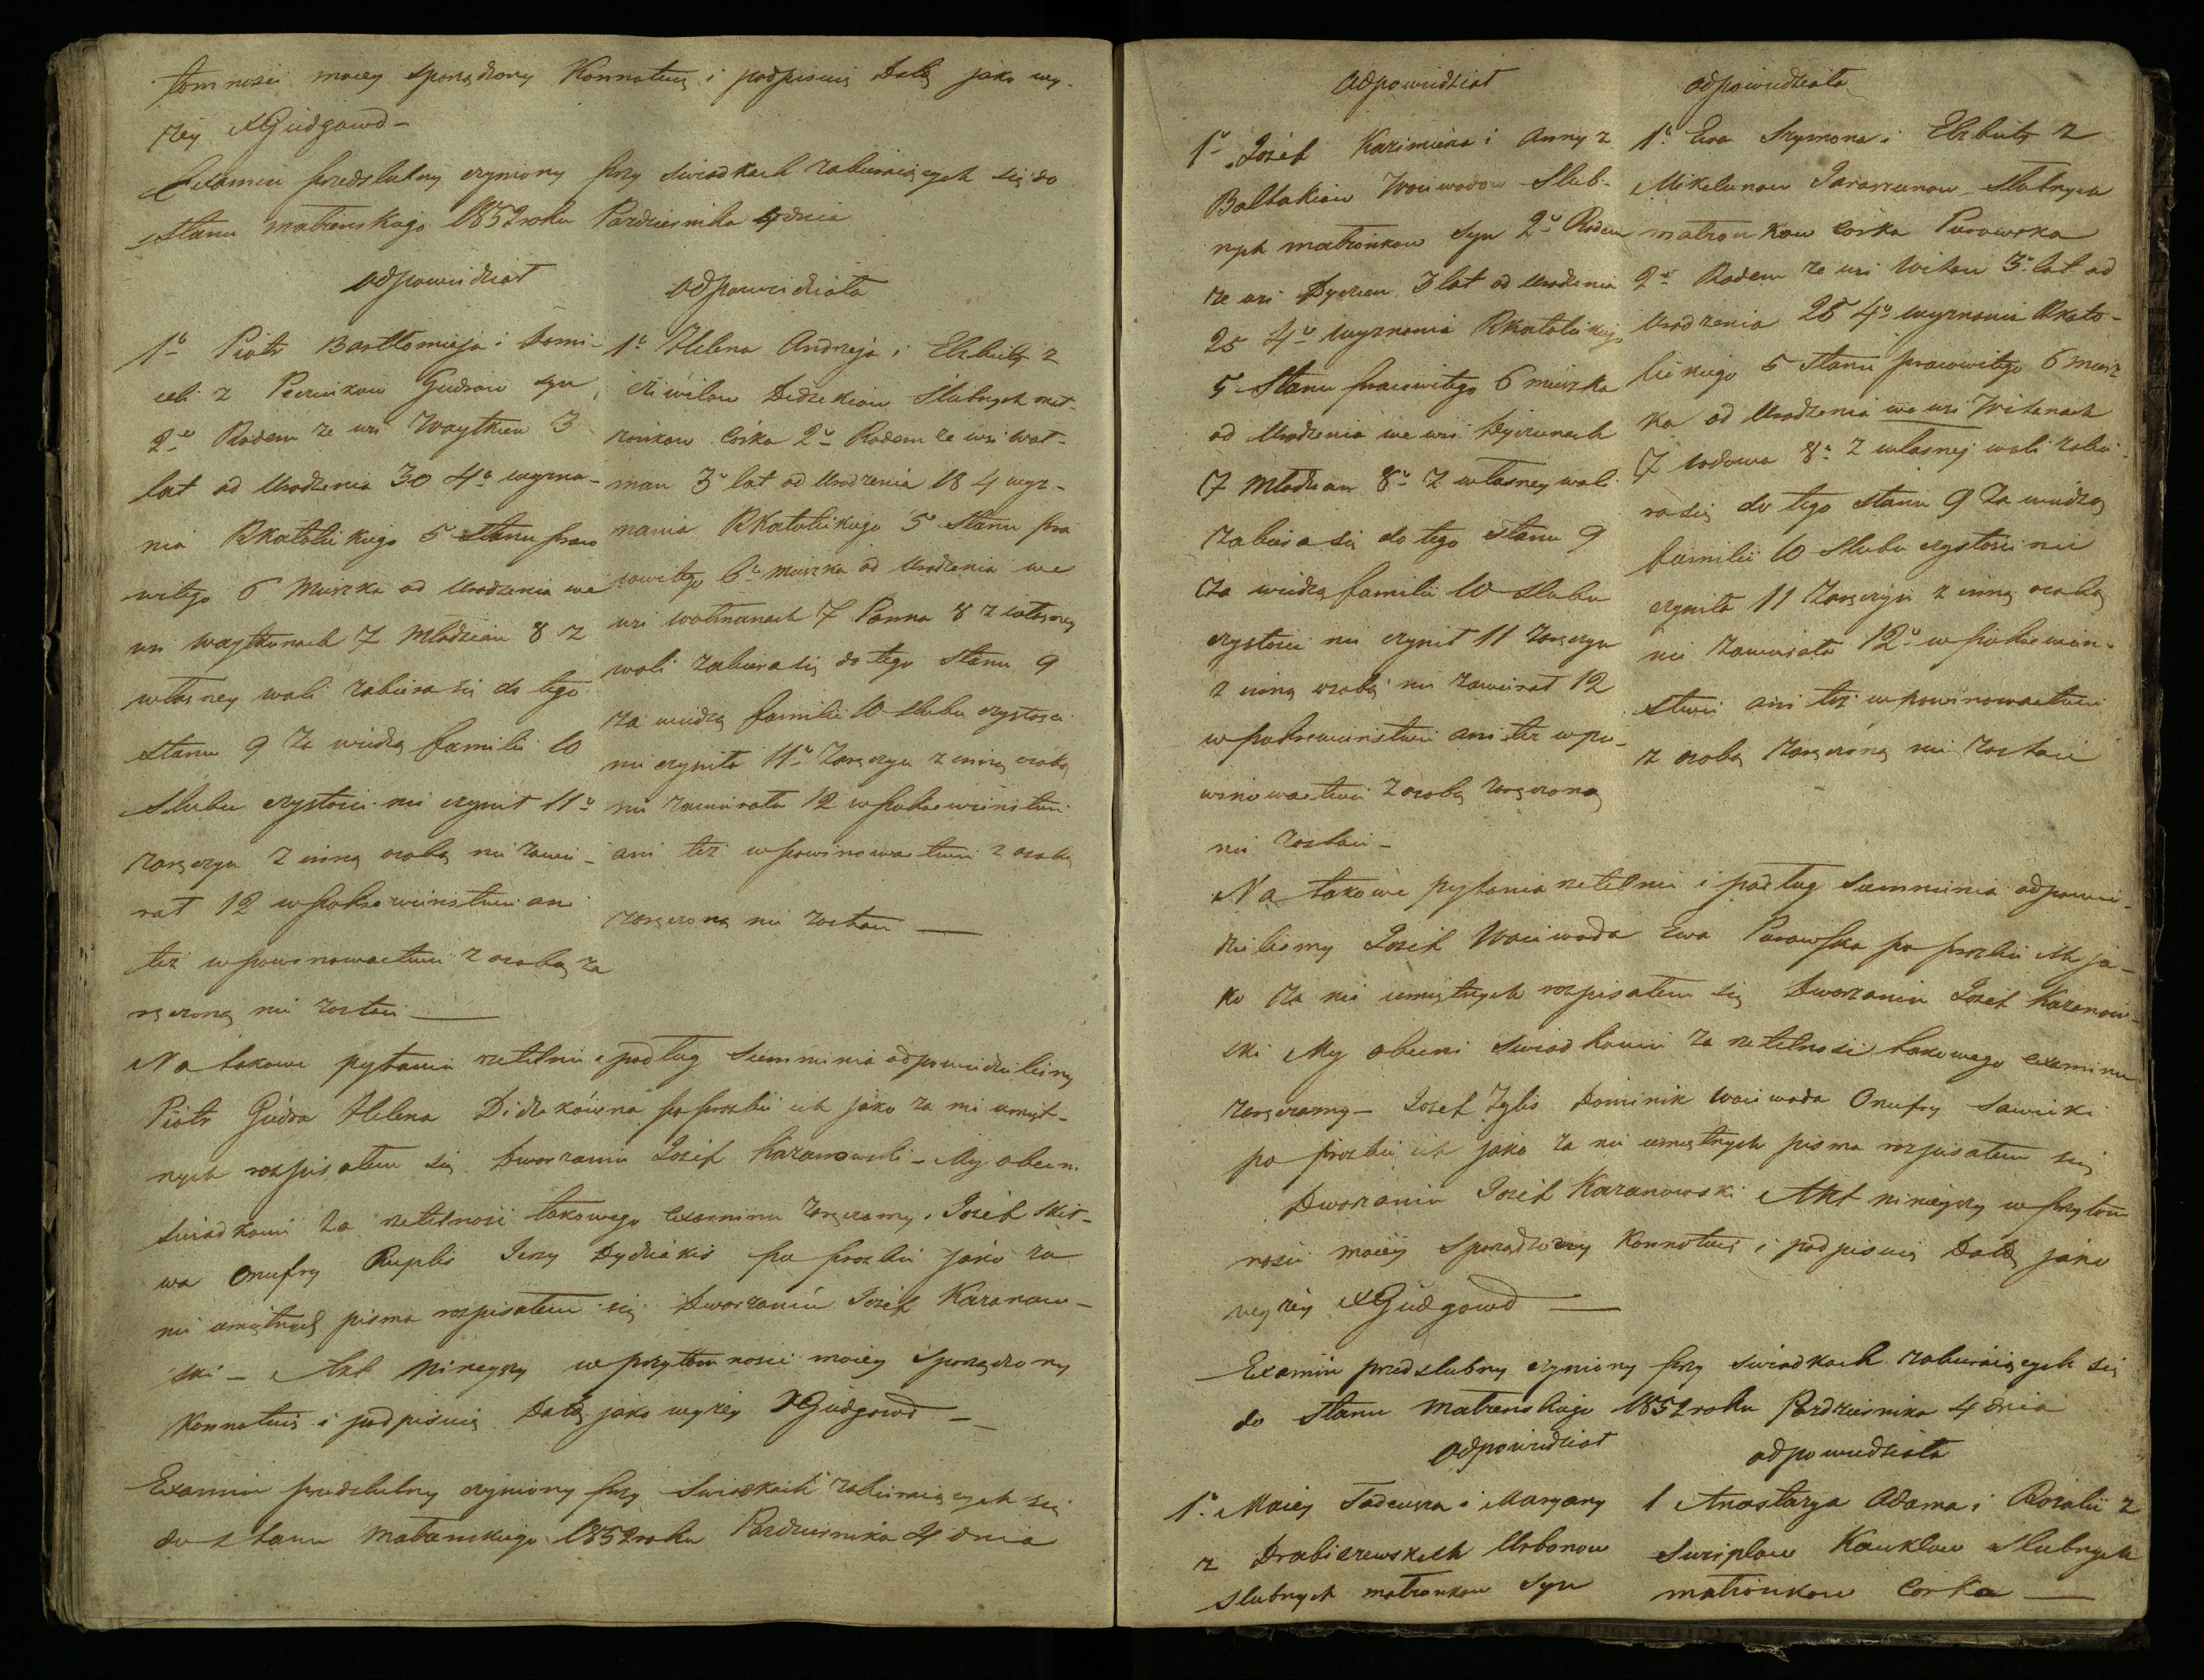 tomnosci moiey sporządzony Konnotuię i podpisuię Datą jako wy-
żey XGiedgowd –
Examin przedslubny czyniony przy swiadkach zabieraiących się do
Stanu małżenskiego 1852 roku Pazdziernika 4 dnia
odpowiedział
1o Piotr Bartłomieja i Domi-
celi z Gudrow syn
2o Rodem ze wsi Waytkun 3
lat od Urodzenia 30 4o wyzna-
nia RKatolickiego 5 Stanu praco
witego 6 Mieszka od Urodzenia we
wsi Waytkunach 7 Młodzian 8 z
własney woli zabiera się do tego
Stanu 9 Za wiedzą familii 10
Slubu czystosci nie czynił 11o
zaręczyn z inną osobą nie zawie-
rał 12 w pokrewienstwie ani
też w powinowactwie z osobą za
ręczoną nie zostaie —
odpowiedziała
1o Helena Andrzeja i Elżbiety z
Didzekiow Slubnych mał-
żonkow córka 2o Rodem ze wsi Wot-
man 3o lat od Urodzenia 18 4 wyz-
nania RKatolickiego 5 Stanu pra
cowitego 6o mieszka od Urodzenia we
wsi Wotmanach 7 Panna 8 z własney
woli zabiera się do tego Stanu 9
za wiedzą familii 10 slubu czystosci
nie czyniła 11o Zaręczyn z inną osobą
nie zawierała 12 w pokrewienstwie
ani też w powinowactwie z osobą
zaręczoną nie zostaie —
Na takowe pytania rzetelnie i podług Sumnienia odpowiedzielismy
Piotr Gudra Helena Didzekówna po prozbie ich jako za nie umięt-
nych rozpisałem się Dworzanin Jozef Kazanowski – My obecni
swiadkowie za rzetelnosć takowego examinu zaręczamy. Jozef Skir-
wa Onufry Ruplis Jerzy Dydziakis po prozbie jako za
nie umiętnych pisma rozpisałem się Dworzanin Jozef Kazanow-
ski – Akt ninieyszy w przytomnosci moiey Sporządzony
Konnotuię i podpisuię Datą jako wyżey XGiedgowd –
Examin przedslubny czyniony przy Swiadkach zabieraiących się
do stanu małżenskiego 1852 roku Pazdziernika 4 dnia
odpowiedział
1o Jozef Kazimierza i Anny z
Baltakiow Woiewodow Slub-
nych małżonkow syn 2o Rodem
ze wsi Dyczun 3 lat od Urodzenia
25 4o wyznania RKatolickiego
5 Stanu pracowitego 6 mieszka
od Urodzenia we wsi Dyczunach
7 Młodzian 8o Z własney woli
zabiera się do tego Stanu 9
Za wiedzą familii 10 slubu
czystosci nie czynił 11 Zaręczyn
z inną osobą nie zawierał 12
w pokrewienstwie ani też w po-
winowactwie z osobą zaręczoną
nie zostaie –
odpowiedziała
1o Ewa Szymona i Elżbiety z
Mikelunow Slubnych
małżonkow córka Purowska
2o Rodem ze wsi Witan 3o lat od
Urodzenia 25 4o wyznania RKato-
lickiego 5 Stanu pracowitego 6 miesz
ka od Urodzenia we wsi Witanach
7 wdowa 8o Z własnej woli zabie-
ra się do tego stanu 9 Za wiedzą
familii 10 Slubu czystosci nie
czyniła 11 Zaręczyn z inną osobą
nie zawierała 12o w pokrewien-
stwie ani też w powinowactwie
z osobą zaręczoną nie zostaie
Na takowe pytania rzetelnie i podług Sumnienia odpowie-
dzielismy Jozef Woiewoda Ewa Purowska po prozbie ich ja-
ko za nie umiętnych rozpisałem się Dworzanin Jozef Kazanow-
ski My obecni swiadkowie za rzetelnosć takowego examinu
zaręczamy – Jozef Zylis Dominik Woiewoda Onufry Sawicki
po prozbie ich jako za nie umiętnych pisma rozpisałem się
Dworzanin Jozef Kazanowski Akt ninieyszy w przytom
nosci moiey Sporządzony Konnotuię i podpisuię Datą jako
wyżey XGiedgowd —
Examin przedslubny czyniony przy swiadkach zabieraiących się
do Stanu Małżenskiego 1852 roku Pazdziernika 4 dnia
odpowiedział
1o Maiey Tadeusza i Maryany
z Drabiszewskich Urbonow
Slubnych małżonkow Syn
odpowiedziała
1 Anastazya Adama i Rozalii z
Kauklow Slubnych
małżonkow Corka —